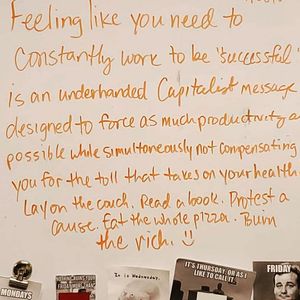 Feeling like you need to
Constantly work to be 'successful'
is an underhanded Capitalist message
designed to force as much productivity as
possible while simultaneously not compensating
you for the toll that takes on your health.
Lay on the couch. Read a book. Protest a
cause. Eat the whole pizza. Burn
the rich.
MONDAYS
NOTHING RUINS YOUR
FRIDAY MORE THAN
IT'S THURSDAY, OR AS I
LIKE TO CALL IT,
FRIDAY